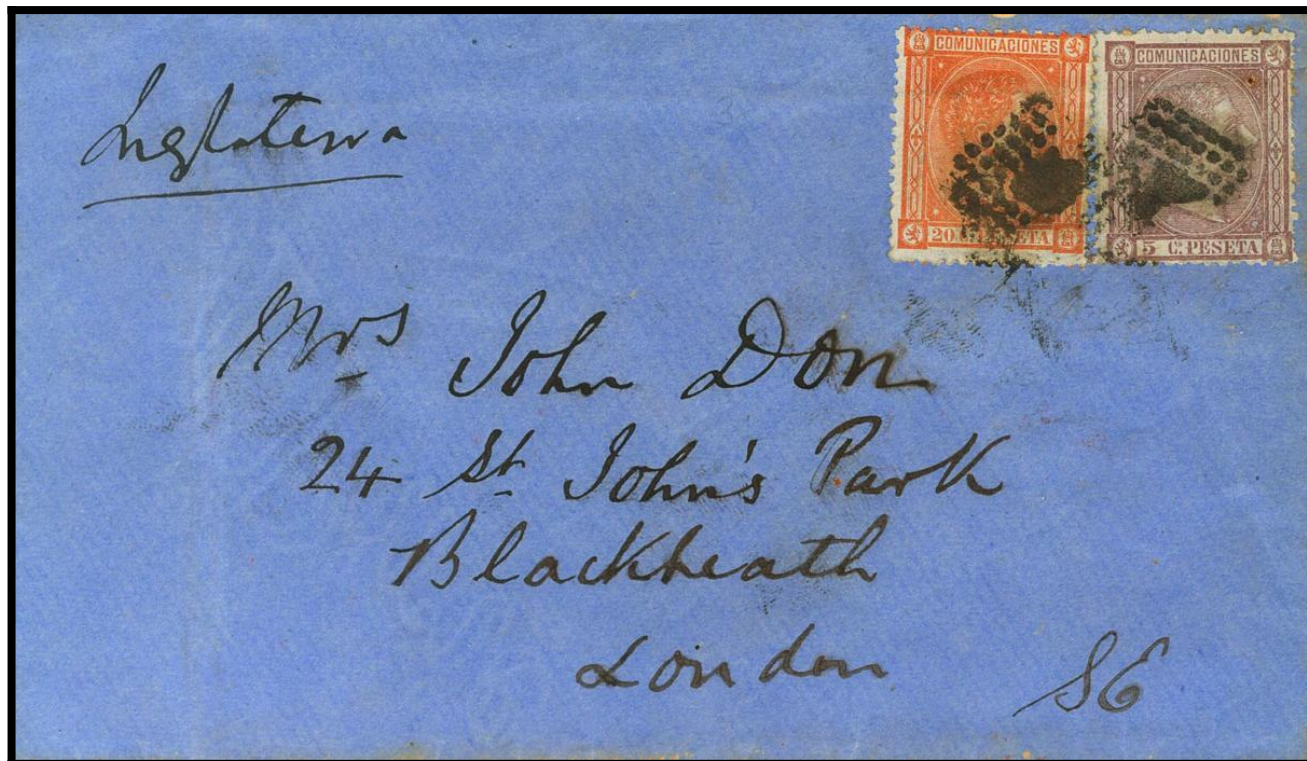 Inglaterra
COMUNICACIONES COMUNICACIONES
20 C. PESETA 5 Cs. PESETA
Mrs John Don
24 St. John's Park
Blackheath
London SE